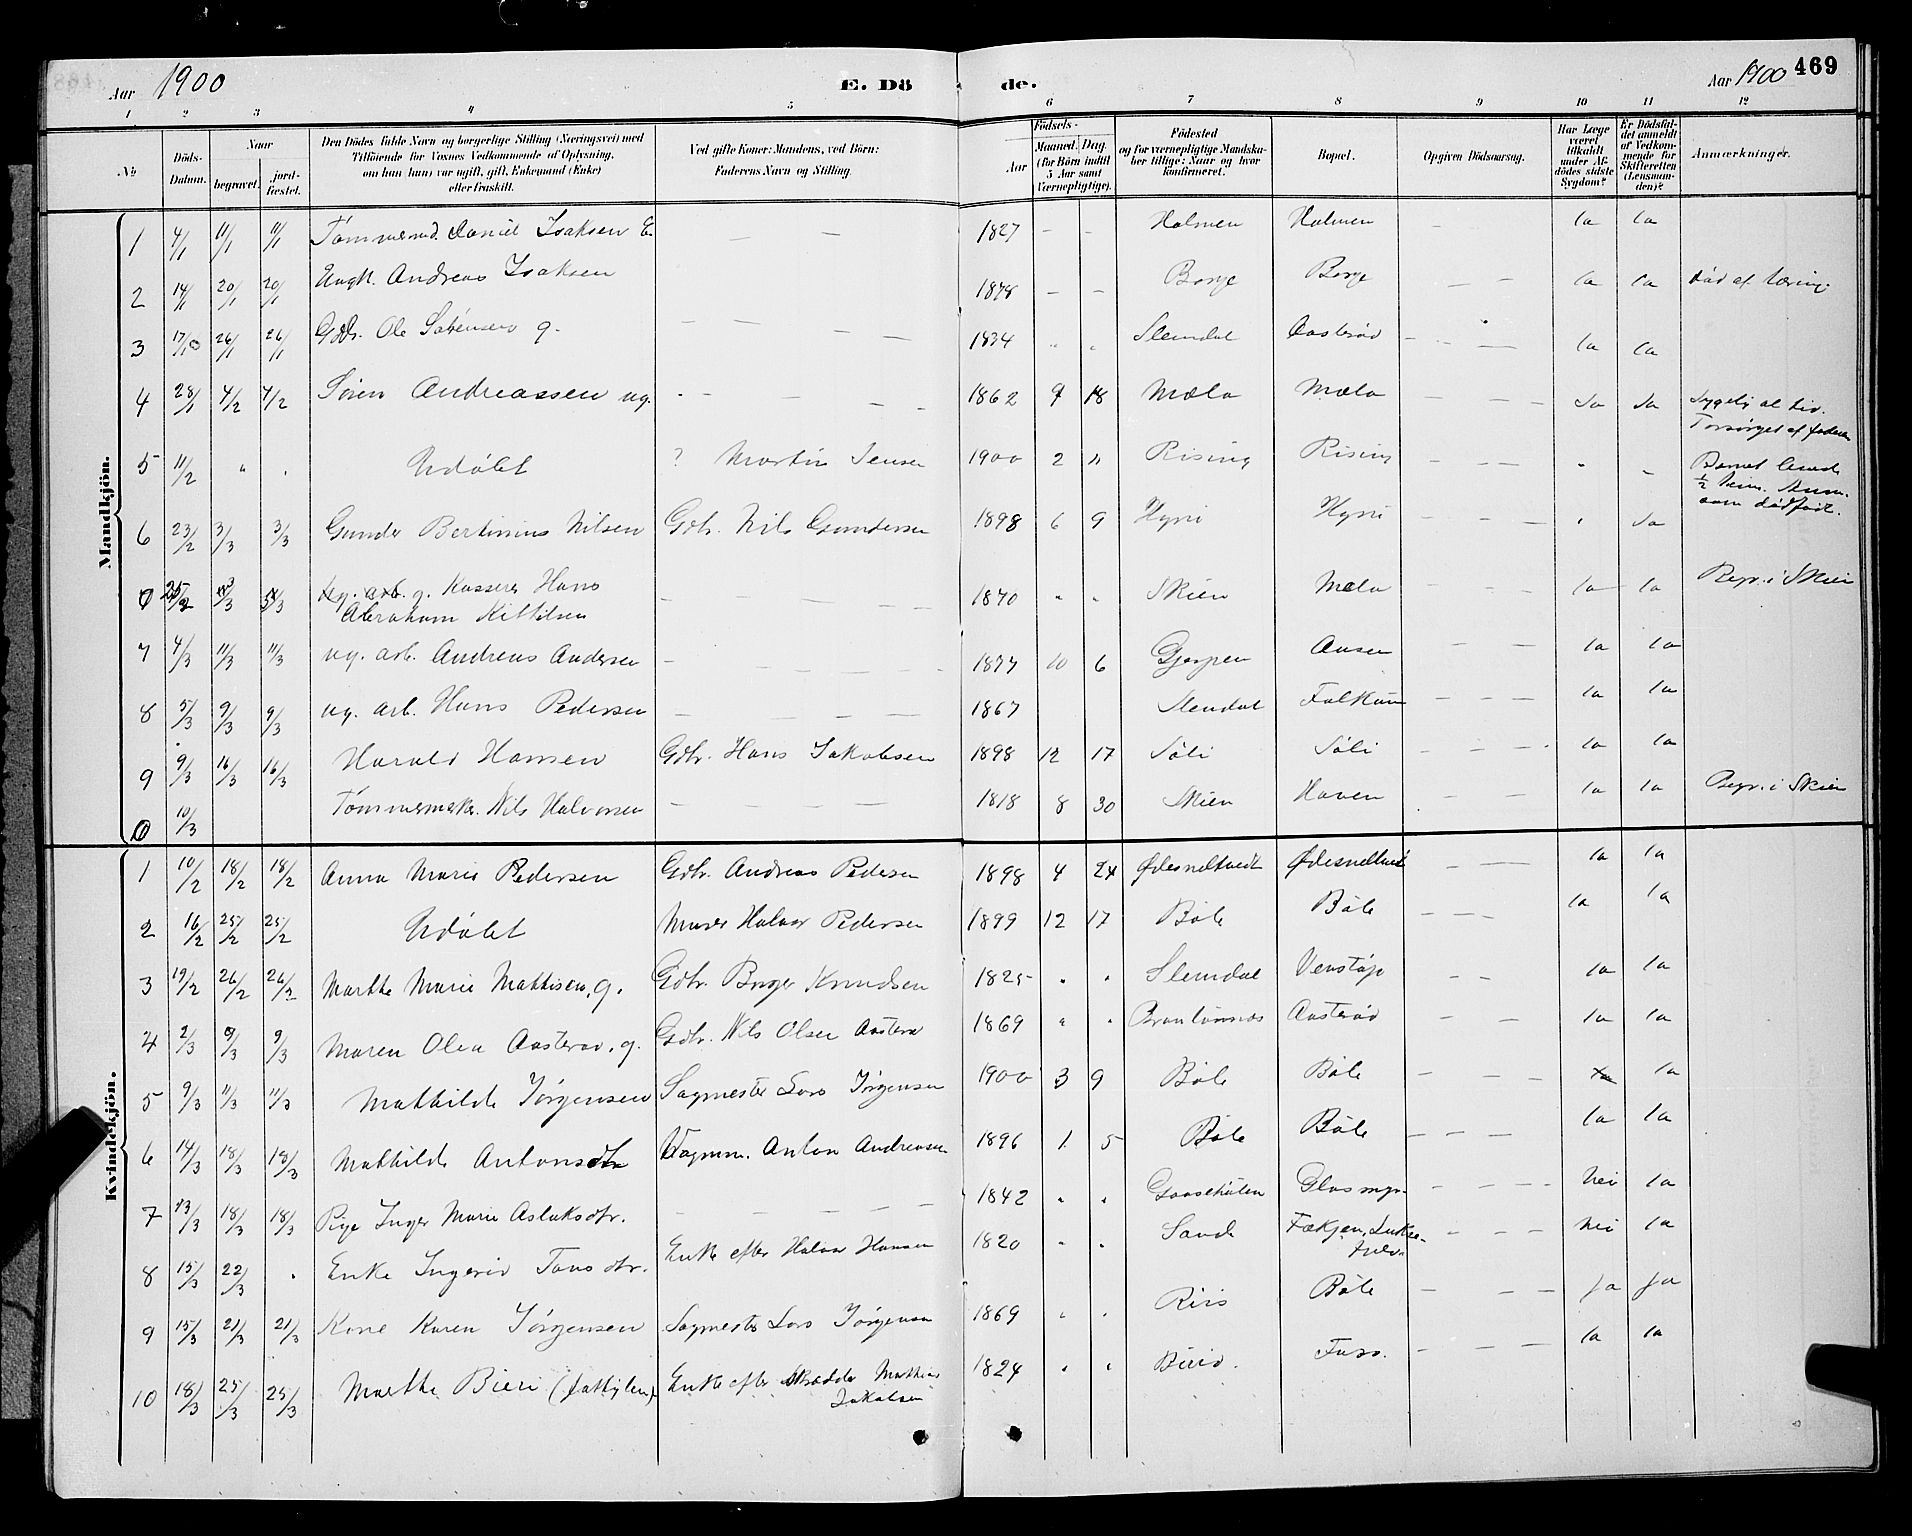 Aar 1900 E. Dö de. Aar 1900 469
1 2 3 4 5 6 7 8 9 10 11 12
No Döds-Datum. Naar begravet. jord-fæstet. Den Dödes fulde Navn og borgerlige Stilling (Næringsvei) med Tilföiende for Voxnes Vedkommende af Oplysning, om han (hun) var ugift, gift, Enkemand (Enke) eller fraskilt. Ved gifte Koner: Mandens, ved Börn: Faderens Navn og Stilling. Födsels- Aar Maaned. Dag. (for Börn indtil 5 Aar samt Værnepligtige). Födested og for værnepligtige Mandskaber tillige: Naar og hvor konfirmeret. Bopæl. Opgiven Dödsaarsag. Har Læge været tilkaldt under Afdödes sidste Sygdom? Er Dödsfaldet anmeldt af Vedkommende for Skifteretten (Lensmanden)? Anmærkninger.
Mandkjön.
1 4/1 11/1 11/1 Tømmermd. Daniel Isaksen E. — — 1827 - - Holmen Holmen - Ja Ja
2 14/1 20/1 20/1 Ungk. Andreas Isaksen 1878 — — Borge Borge — — Ja Ja Død af tæring.
3 17/1 26/1 26/1 Gdbr. Ole Sørensen g. — — — — 1834 " " Slemdal Aasterød - — — Ja Ja
4 28/1 4/2 4/2 Søren Andreassen ug. - - — — — 1862 9 18 Mæla Mæla - — — Ja Ja Sygelig al tid.
Forsørget af faderen
5 11/2 " " Udøbt ? Martin Jensen 1900 2 11 Rising Rising - — — - - Barnet levede
1/2 time. Anm.
som dødfødt.
6 23/2 3/3 3/3 Gunder Bertinius Nilsen Gdbr. Nils Gundersen 1898 6 9 Hyni Hyni - - — - Ja
0 25/2 3/3 3/3 g. Kasserer Hans
Abraham Kittilsen — — — — 1870 " " Skien Mæla - — Ja Ja Begr. i Skien
7 4/3 11/3 11/3 ug. arb. Andreas Andersen — — — — 1877 10 6 Gjerpen Aasen — — Ja Ja
8 5/3 9/3 9/3 ug. arb. Hans Pedersen — — — — 1867 Slemdal Falkum - — — Ja Ja
9 9/3 16/3 16/3 Harald Hansen Gdbr. Hans Jakobsen 1898 12 17 Søli Søli - — — Ja Ja
0 10/3 Tømmermerker. Nils Halvorsen — — — — 1818 8 30 Skien Haven — — — Ja Ja Begr. i Skien
Kvindekjön.
1 10/2 18/2 18/2 Anna Marie Pedersen Gdbr. Andreas Pedersen 1898 4 24 Ødesneltvedt Ødesneltvedt - — — Ja Ja
2 16/2 25/2 25/2 Udøbt Murer Halvor Pedersen 1899 12 17 Bøle Bøle - — - Ja Ja
3 19/2 26/2 26/2 Marthe Marie Mathisen, g. Gdbr. Borger Knudsen 1825 " " Slemdal Venstøp — — Ja Ja
4 2/3 9/3 9/3 Maren Olea Aasterød, g. Gdbr. Nils Olsen Aasterød 1869 " " Aasterød - — Ja Ja
5 9/3 11/3 11/3 Mathilde Jørgensen Sagmester Lars Jørgensen 1900 3 9 Bøle Bøle - — — Ja Ja
6 14/3 18/3 18/3 Mathilde Antonsdtr Vognm. Anton Andreasen 1896 1 5 Bøle Bøle — — — Ja Ja
7 13/3 18/3 18/3 Pige Inger Marie Aslaksdtr. — — — — — 1842 " " Gaaseholen Glasmyr. - — — Nei Ja
8 15/3 22/3 " Enke Ingerid Tonsdtr. Enke efter Halvor Hansen 1820 " " Sande Fækjen, - — — Nei Ja
9 15/3 21/3 21/3 Kone Karen Jørgensen Sagmester Lars Jørgensen 1869 " " Riis Bøle — — — Ja Ja
10 18/3 25/3 25/3 Marthe Bieri (fattiglem) Enke efter Skrædder Mathias
Jakobsen 1824 " " Foss. - — — Ja Ja